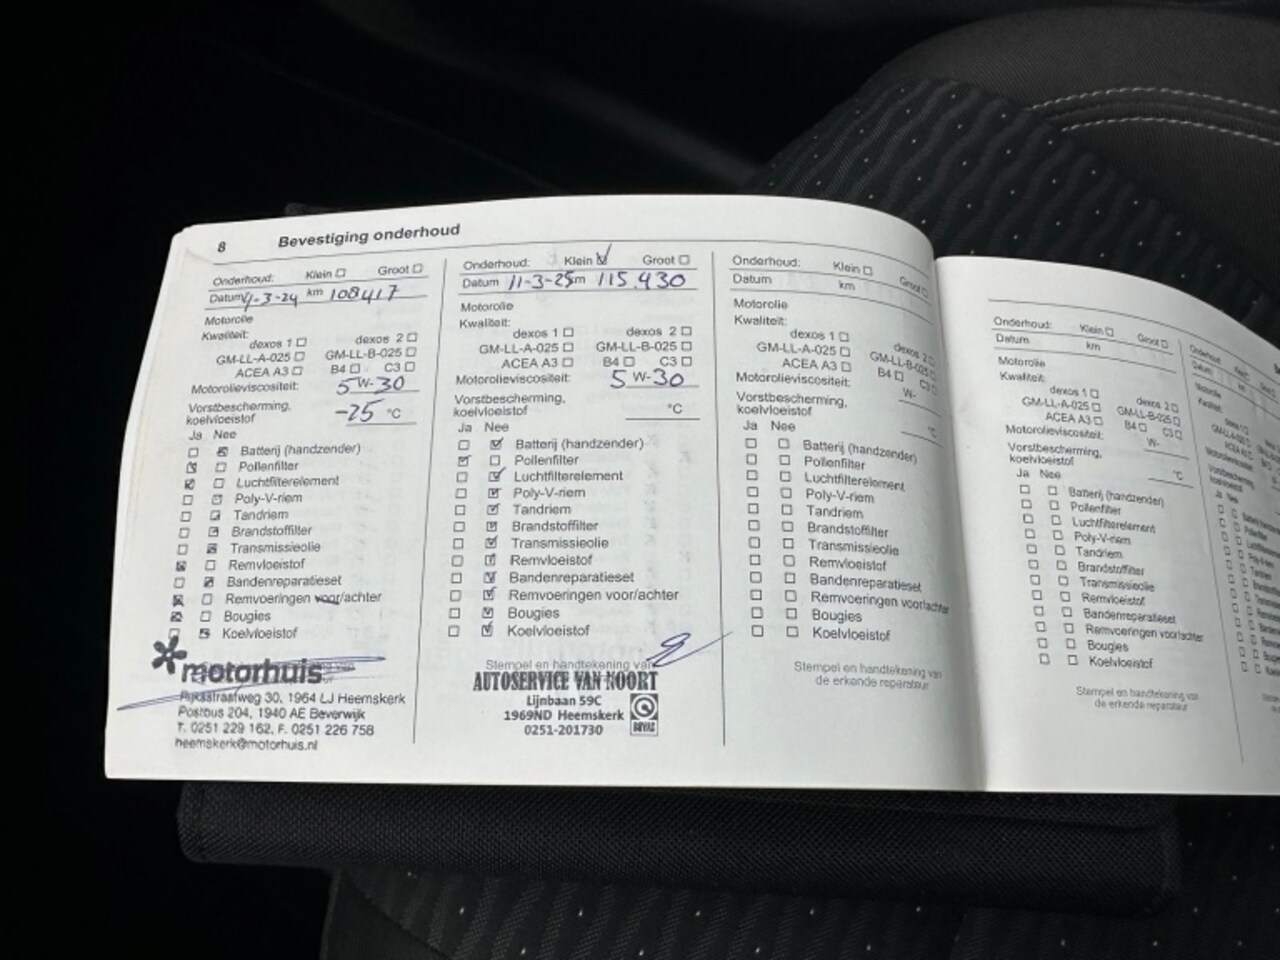 8 Bevestiging onderhoud
Onderhoud: Klein Groot
Datum 4-3-24 km 108417
Motorolie
Kwaliteit:
dexos 1 dexos 2
GM-LL-A-025 GM-LL-B-025
ACEA A3 B4 C3
Motorolieviscositeit: 5 W-30
Vorstbescherming,
koelvloeistof -25 °C
Ja Nee
Batterij (handzender)
Pollenfilter
Luchtfilterelement
Poly-V-riem
Tandriem
Brandstoffilter
Transmissieolie
Remvloeistof
Bandenreparatieset
Remvoeringen voor/achter
Bougies
Koelvloeistof
motorhuis
Rijksstraatweg 30, 1964 LJ Heemskerk
Postbus 204, 1940 AE Beverwijk
T. 0251 229 162, F. 0251 226 758
heemskerk@motorhuis.nl
Onderhoud: Klein Groot
Datum 11-3-25 km 115.430
Motorolie
Kwaliteit:
dexos 1 dexos 2
GM-LL-A-025 GM-LL-B-025
ACEA A3 B4 C3
Motorolieviscositeit: 5 W-30
Vorstbescherming,
koelvloeistof °C
Ja Nee
Batterij (handzender)
Pollenfilter
Luchtfilterelement
Poly-V-riem
Tandriem
Brandstoffilter
Transmissieolie
Remvloeistof
Bandenreparatieset
Remvoeringen voor/achter
Bougies
Koelvloeistof
Stempel en handtekening van
AUTOSERVICE VAN NOORT
Lijnbaan 59C
1969ND Heemskerk
0251-201730
BOVAG
Onderhoud: Klein Groot
Datum km
Motorolie
Kwaliteit:
dexos 1 dexos 2
GM-LL-A-025 GM-LL-B-025
ACEA A3 B4 C3
Motorolieviscositeit: W-
Vorstbescherming,
koelvloeistof °C
Ja Nee
Batterij (handzender)
Pollenfilter
Luchtfilterelement
Poly-V-riem
Tandriem
Brandstoffilter
Transmissieolie
Remvloeistof
Bandenreparatieset
Remvoeringen voor/achter
Bougies
Koelvloeistof
Stempel en handtekening van
de erkende reparateur
Onderhoud: Klein Groot
Datum km
Motorolie
Kwaliteit:
dexos 1 dexos 2
GM-LL-A-025 GM-LL-B-025
ACEA A3 B4 C3
Motorolieviscositeit: W-
Vorstbescherming,
koelvloeistof °C
Ja Nee
Batterij (handzender)
Pollenfilter
Luchtfilterelement
Poly-V-riem
Tandriem
Brandstoffilter
Transmissieolie
Remvloeistof
Bandenreparatieset
Remvoeringen voor/achter
Bougies
Koelvloeistof
Stempel en handtekening van
de erkende reparateur